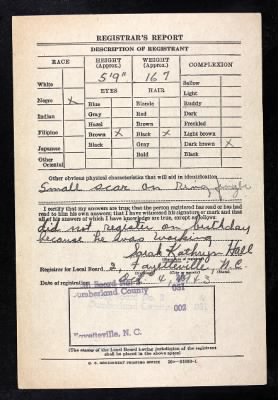 REGISTRAR'S REPORT
DESCRIPTION OF REGISTRANT
RACE
HEIGHT (Approx.)
WEIGHT (Approx.)
COMPLEXION
5'9"
167
White
Sallow
EYES
HAIR
Light
Negro X
Blue
Blonde
Ruddy
Gray
Red
Dark
Indian
Hazel
Brown
Freckled
Filipino
Brown X
Black X
Light brown
Japanese
Black
Gray
Dark brown X
Other
Oriental
Bald
Black
Other obvious physical characteristics that will aid in identification
Small scar on Ring finger
I certify that my answers are true; that the person registered has read or has had
read to him his own answers; that I have witnessed his signature or mark and that
all of his answers of which I have knowledge are true, except as follows:
did not register on birthday
because he was working
Sarah Kathryn Hall
Registrar for Local Board 2, Fayetteville N.C.
Date of registration
Board
Cumberland County
051
002
001
Fayetteville, N. C.
(The stamp of the Local Board having jurisdiction of the registrant
shall be placed in the above space)
U. S. GOVERNMENT PRINTING OFFICE